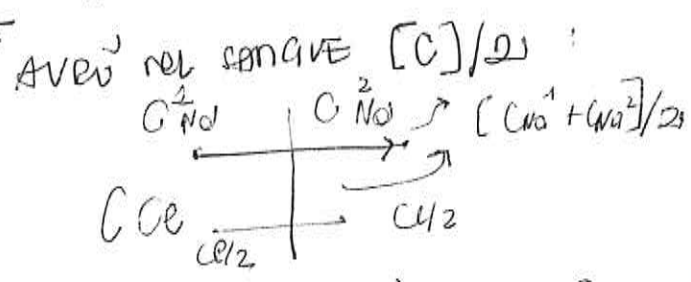 AVRÒ NEL SANGUE [C]/2 :
C¹Na C²Na [CNa¹ + CNa²]/2
CCl Cl/2
Cl/2